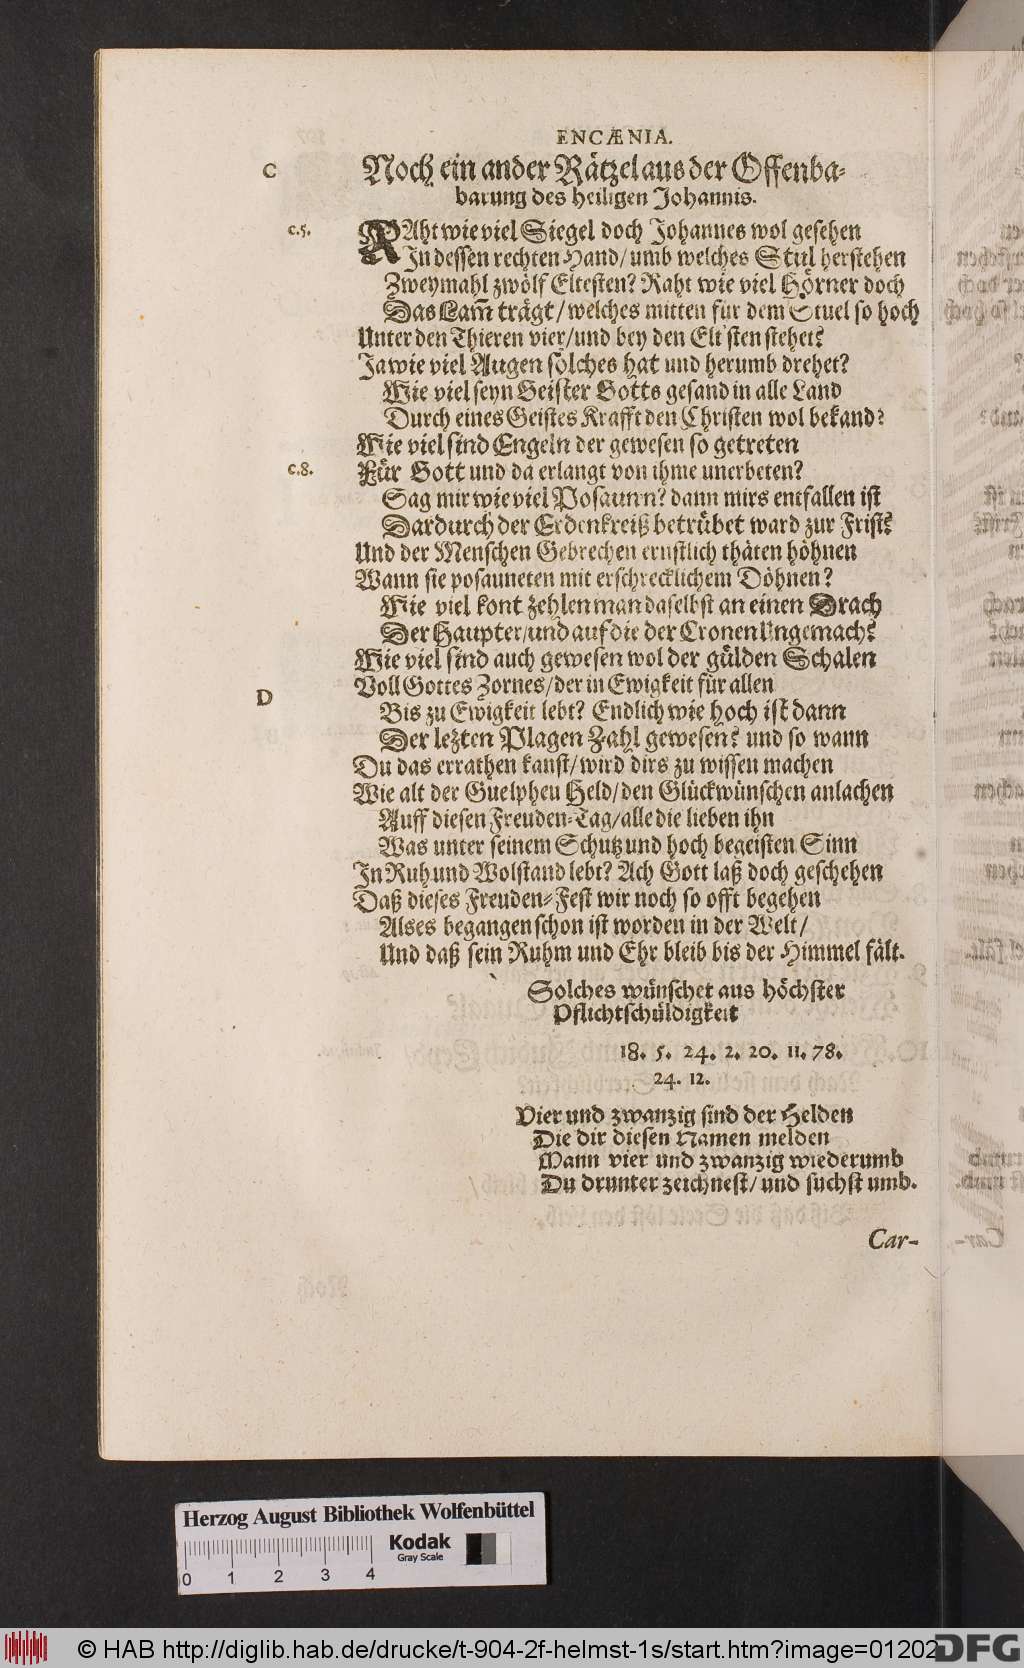 ENCÆNIA.
C Noch ein ander Rätzel aus der Offenba-
barung des heiligen Johannis.
c.5. RAht wie viel Siegel doch Johannes wol gesehen
In dessen rechten Hand/ umb welches Stul herstehen
Zweymahl zwölf Eltesten? Raht wie viel Hörner doch
Das Lam̃ trägt/ welches mitten für dem Stuel so hoch
Unter den Thieren vier/ und bey den Elt'sten stehet?
Ja wie viel Augen solches hat und herumb drehet?
Wie viel seyn Geister Gotts gesand in alle Land
Durch eines Geistes Krafft den Christen wol bekand?
Wie viel sind Engeln der gewesen so getreten
c.8. Für Gott und da erlangt von ihme unerbeten?
Sag mir wie viel Posaunen? dann mirs entfallen ist
Dardurch der Erdenkreiß betrübet ward zur Frist?
Und der Menschen Gebrechen ernstlich thäten höhnen
Wann sie posauneten mit erschrecklichem Döhnen?
Wie viel kont zehlen man daselbst an einen Drach
Der Haupter/ und auf die der Cronen Ungemach?
Wie viel sind auch gewesen wol der gülden Schalen
D Voll Gottes Zornes/ der in Ewigkeit für allen
Bis zu Ewigkeit lebt? Endlich wie hoch ist dann
Der letzten Plagen Zahl gewesen? und so wann
Du das errathen kanst/ wird dirs zu wissen machen
Wie alt der Guelpheu Held/ den Glückwünschen anlachen
Auff diesen Freuden-Tag/ alle die lieben ihn
Was unter seinem Schutz und hoch begeisten Sinn
In Ruh und Wolstand lebt? Ach Gott laß doch geschehen
Daß dieses Freuden-Fest wir noch so offt begehen
Als es begangen schon ist worden in der Welt/
Und daß sein Ruhm und Ehr bleib bis der Himmel fält.
Solches wünschet aus höchster
Pflichtschüldigkeit
18. 5. 24. 2. 20. 11. 78.
24. 12.
Vier und zwanzig sind der Helden
Die dir diesen Namen melden
Wann vier und zwanzig wiederumb
Du drunter zeichnest/ und suchst umb.
Car-
Herzog August Bibliothek Wolfenbüttel
Kodak
Gray Scale
0 1 2 3 4
© HAB http://diglib.hab.de/drucke/t-904-2f-helmst-1s/start.htm?image=01202
DFG